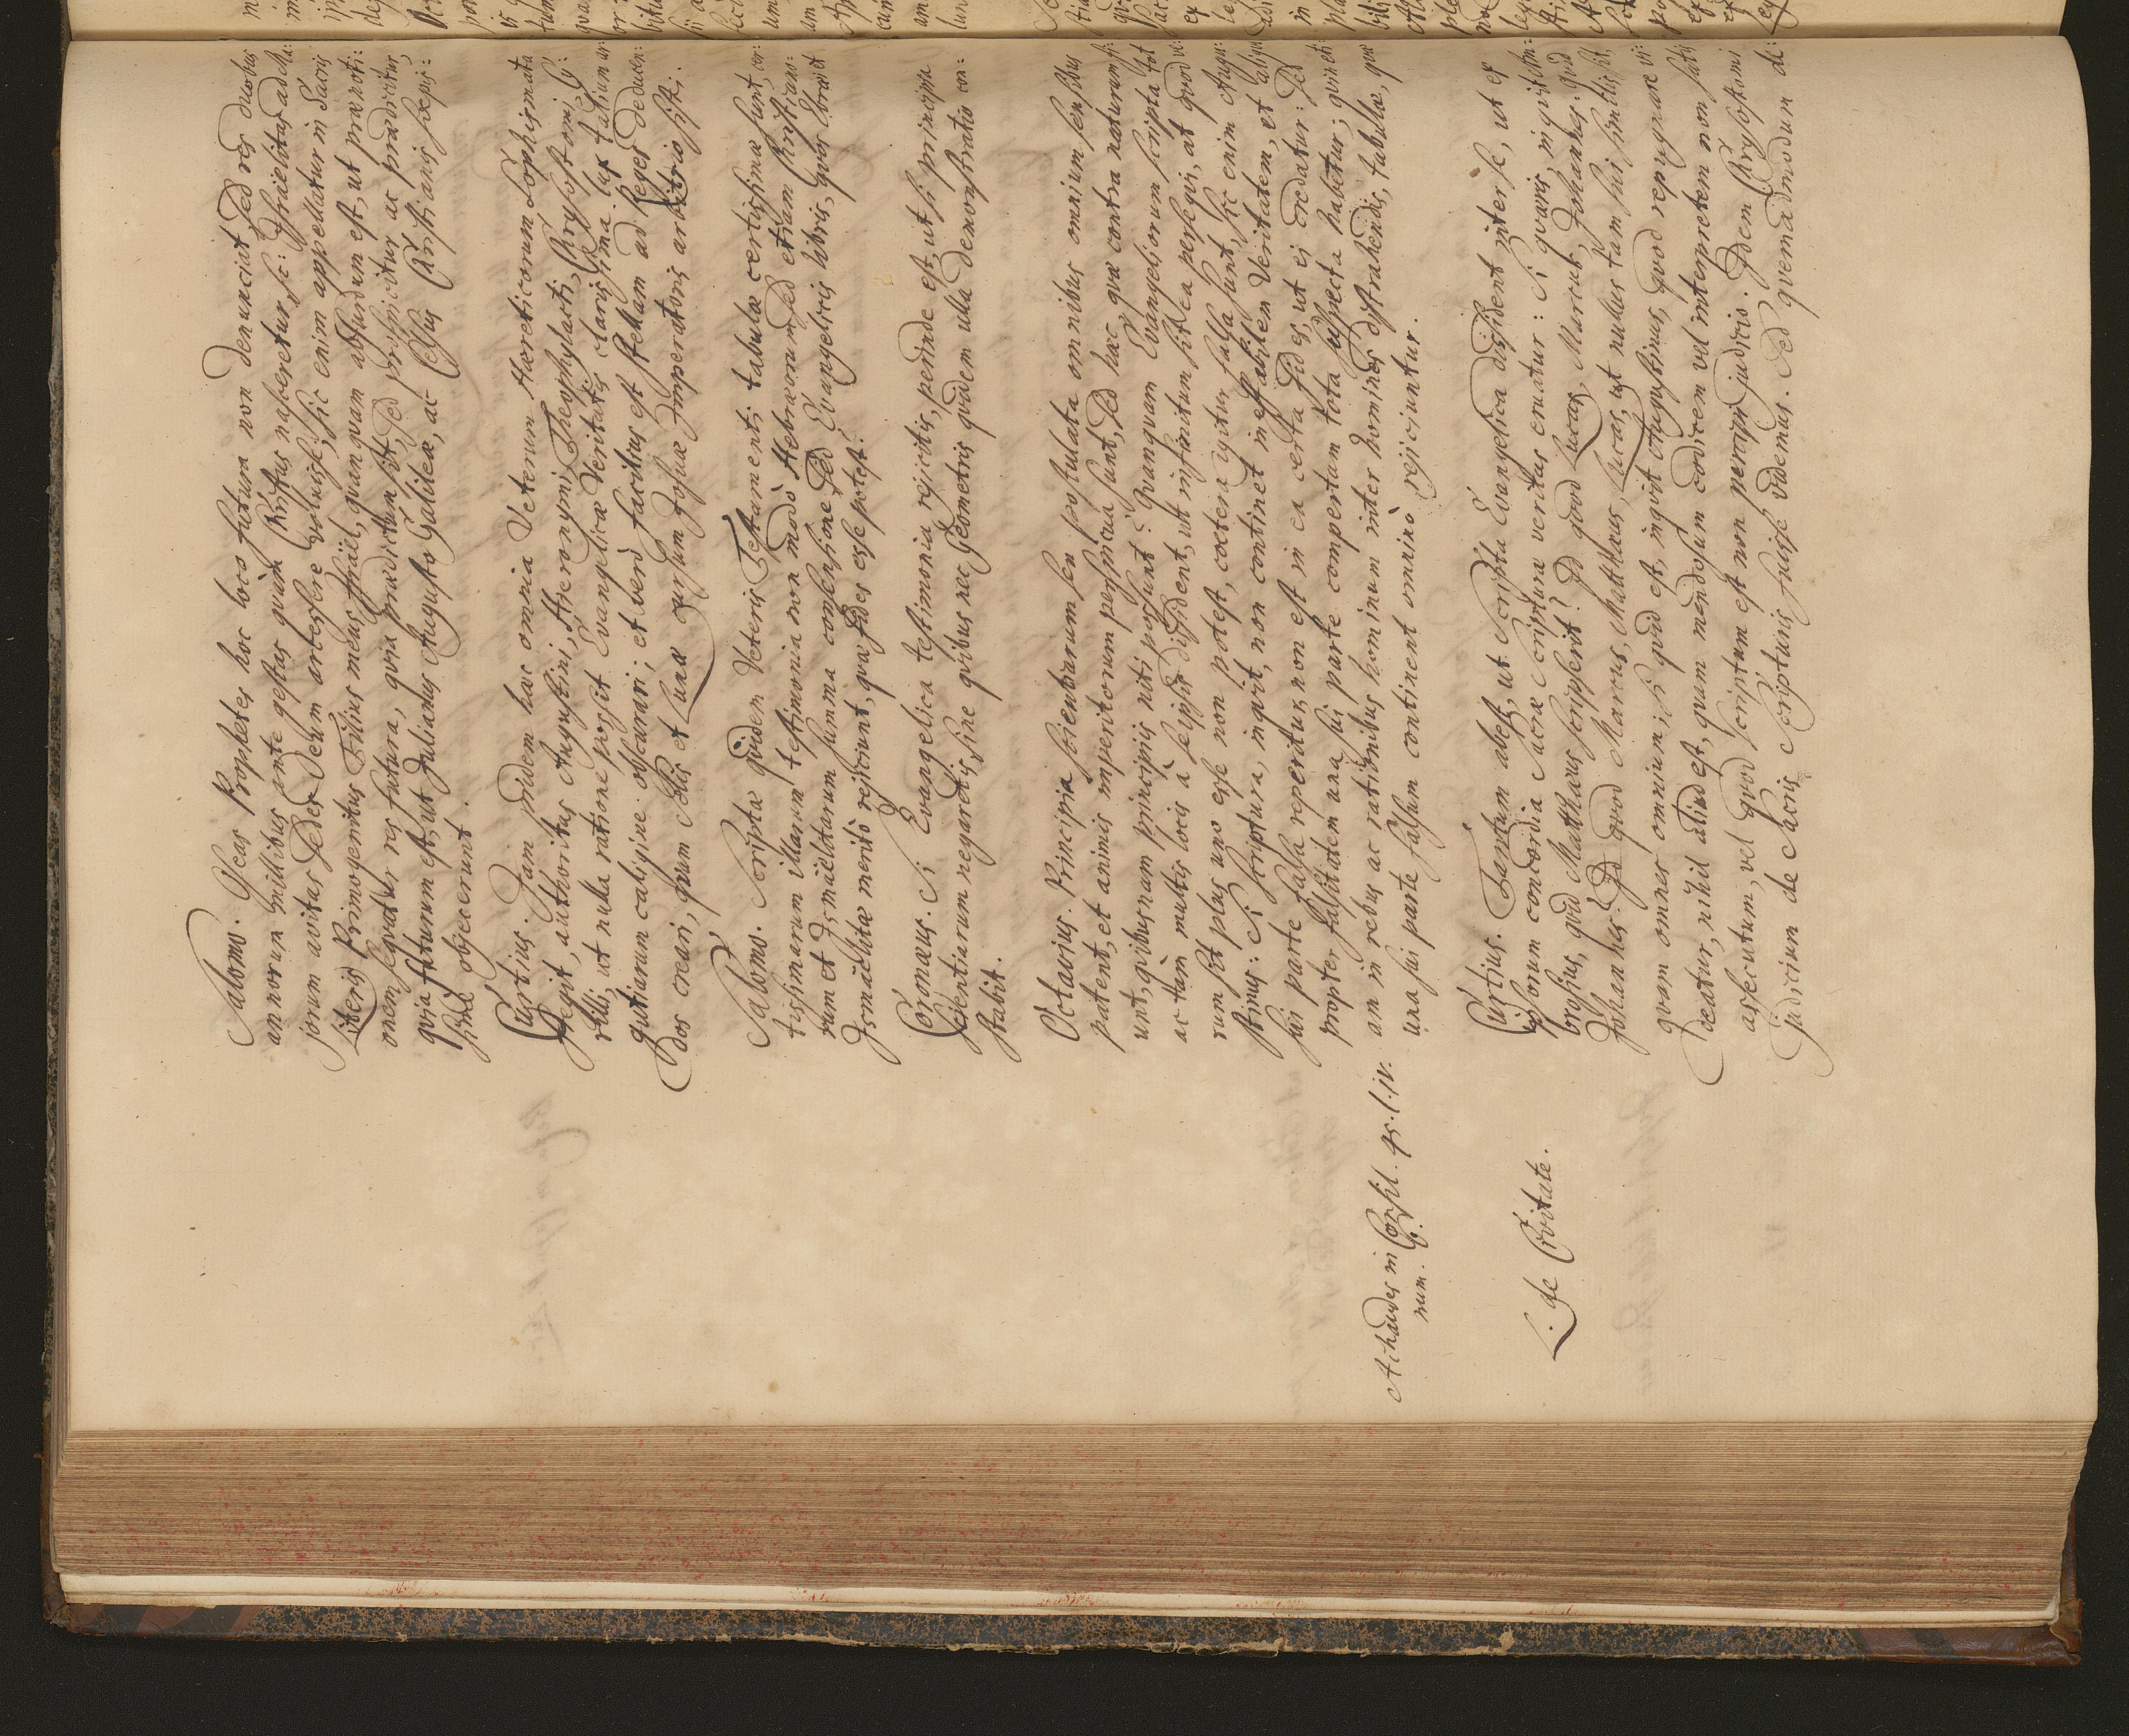 Salomo. Oseas Prophetes hoc loco futura non denunciat, sed res duobus
annorum millibus ante gestas quàm Christus nasceretur, sc: Israëlitas ad Ma:
jorum avitas sedes Deum arcessere voluisse; sic enim appellatur in Sacris
Literis Primogenitus Filius meus Israël, quanquam absurdum est, ut prænoti:
onem sequatur res futura, quia prædicta sit, sed prospicitur ac prædicitur,
quia futurum est, ut Julianus Augusto Galilæa, ac Celsus Christianis sæpis:
simè objecerunt.
Curtius. Jam pridem hæc omnia Veterum Hæreticorum Sophismata
fregit, authoritas Augustini, Hieronymi, Theophylacti, Chrysostomi, Cy:
rilli, ut nulla ratione possit Evangelicæ Veritatis clarissima lux talium ar:
gutiarum caligine obscurari; et verò facilius est stellam ad Reges deducen:
dos creari, quam Solis et Lunæ cursum Josuæ Imperatoris arbitrio sisti.
Salomo. Scripta quidem Veteris Testamenti tabulæ certissimæ sunt, cer:
tissimarum illarum testimonia non modò Hebræorum sed etiam Christiano:
rum et Ismaëlitarum summa consensione, sed Evangelicis libris, quos Ebræi et
Ismaëlitæ meritò rejiciunt, quæ fides esse potest?
Coronæus. Si Evangelica testimonia rejicitis, perinde est, ut si principia
scientiarum negaretis, sine quibus nec Geometris quidem ulla demonstratio con:
stabit.
Octavius. Principia scientiarum seu postulata omnibus omnium sensibus
patent, et animis imperitorum perspicua sunt, sed hæc, quæ contra naturam fi:
unt, quibusnam principiis niti possunt? Quanquam Evangeliorum scripta tot
ac tàm multis locis à seipsis dissident, ut infinitum sit ea persequi, at quod ve:
rum sit plus uno esse non potest, cætera igitur falsa sunt, sic enim Augu:
stinus: Si Scriptura, inquit, non continet ineffabilem Veritatem, et aliqua
sui parte falsa reperitur, non est in ea certa fides, ut ei credatur: sed
propter falsitatem una sui parte compertam tota suspecta habetur; quin eti:
am in rebus ac rationibus hominum inter homines distrahendis, tabulæ, quæ
una sui parte falsum continent omninò rejiciuntur.
Alchaudes in Consil. 45. l. iv.
num.
Curtius. Tantum abest, ut Scripta Evangelica dissideant inter se, ut ex
ipsorum concordia Sacræ Scripturæ veritas eruatur: Si quæris, inquit Am:
brosius, quid Matthæus scripserit? Id quod Lucas, Marcus, Johannes: quid
Johannes? Id quod Marcus, Matthæus, Lucas, ut nullus tam sui similis sit,
quam omnes omnium; si quid est, inquit Augustinus, quod repugnare vi:
deatur, nihil aliud est, quam mendosum codicem vel interpretem non satis
assecutum, vel quod scriptum est non percipi judicio. Idem Chrysostomi
judicium de Sacris Scripturis fuisse videmus. Sed quemadmodum de:
L. de Civitate.